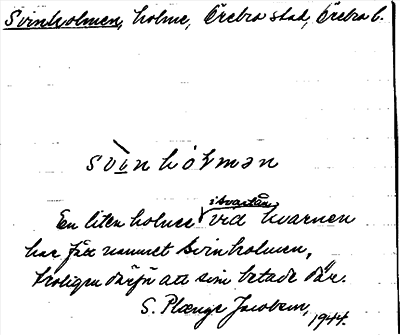 Svinholmen, holme, Örebro stad, Örebro l.
svinhòlmən
i Svartån
En liten holme vid kvarnen
har fått namnet Svinholmen,
troligen därför att svin betade där.
S. Plænge Jacobson,
1944.